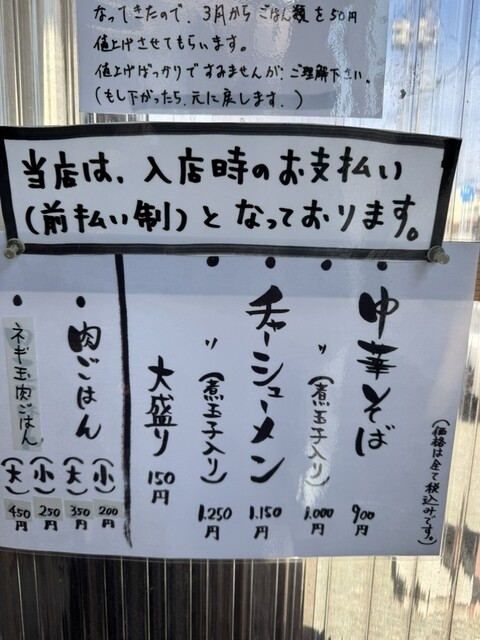 なってきたので、3月からごはん類を50円
値上げさせてもらいます。
値上げばっかりですみませんが、ご理解下さい。
(もし下がったら、元に戻します。)
当店は、入店時のお支払い
(前払い制)となっております。
(価格は全て税込みです。)
・中華そば 900円
・〃(煮玉子入り) 1.000円
・チャーシューメン 1.150円
・〃(煮玉子入り) 1.250円
大盛り 150円
・肉ごはん (小) 200円
(大) 350円
・ネギ玉肉ごはん (小) 250円
(大) 450円